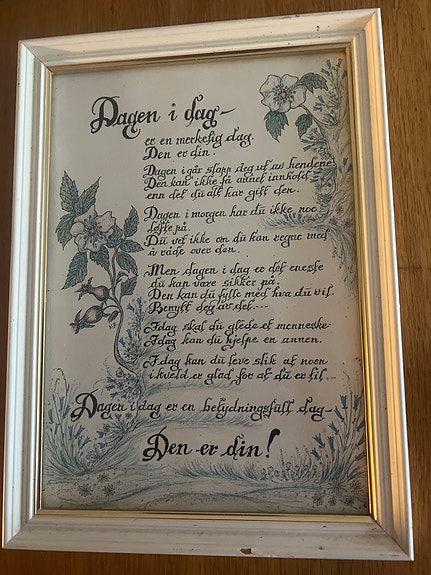 Dagen i dag –
er en merkelig dag.
Den er din.
Dagen i går slapp deg ut av hendene
Den kan ikke få annet innhold
enn det du alt har gitt den.
Dagen i morgen har du ikke noe
løfte på.
Du vet ikke om du kan regne med
å råde over den.
Men dagen i dag er det eneste
du kan være sikker på.
Den kan du fylle med hva du vil.
Benytt deg av det. –––
I dag skal du glede et menneske
I dag kan du hjelpe en annen.
I dag kan du leve slik at noen
i kveld er glad for at du er til...
Dagen i dag er en betydningsfull dag –
Den er din!